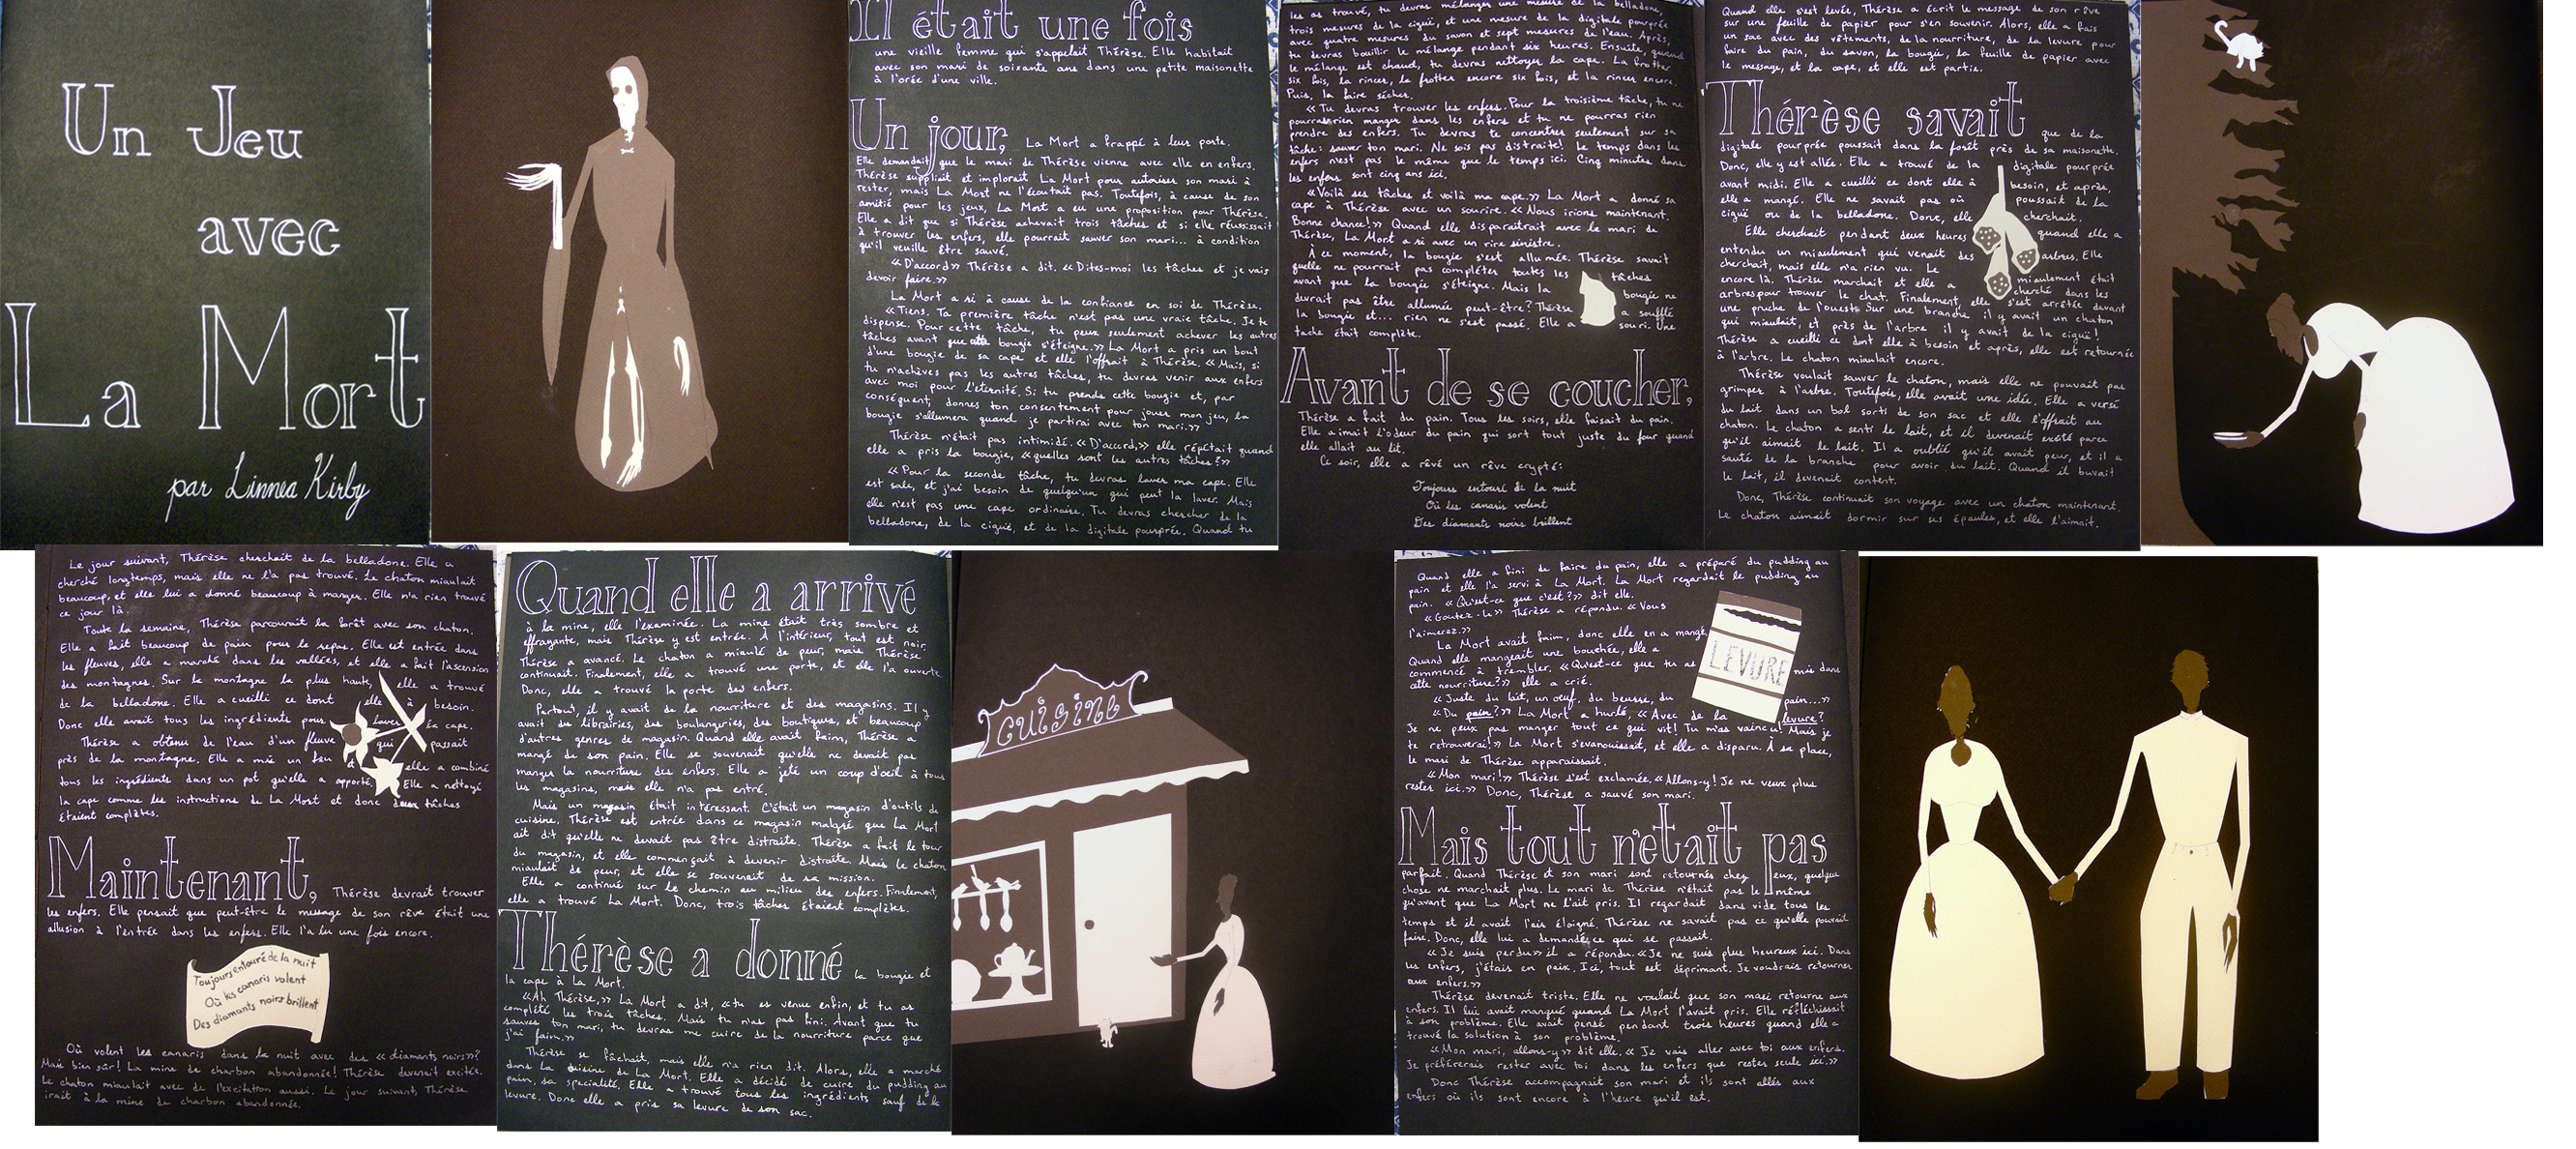 Un Jeu
avec
La Mort
par Linnea Kirby
Il était une fois
une vieille femme qui s'appelait Thérèse. Elle habitait
avec son mari de soixante ans dans une petite maisonette
à l'orée d'une ville.
Un jour, La Mort a frappé à leur porte.
Elle demandait que le mari de Thérèse vienne avec elle en enfers.
Thérèse suppliait et implorait La Mort pour autoriser son mari à
rester, mais La Mort ne l'écoutait pas. Toutefois, à cause de son
amitié pour les jeux, La Mort a eu une proposition pour Thérèse.
Elle a dit que si Thérèse achevait trois tâches et si elle réussissait
à trouver les enfers, elle pourrait sauver son mari... à condition
qu'il veuille être sauvé.
«D'accord» Thérèse a dit. «Dites-moi les tâches et je vais
devoir faire.»
La Mort a ri à cause de la confiance en soi de Thérèse.
«Tiens. Ta première tâche n'est pas une vraie tâche. Je te
dispense. Pour cette tâche, tu peux seulement achever les autres
tâches avant que cette bougie s'éteigne.» La Mort a pris un bout
d'une bougie de sa cape et elle l'offrait à Thérèse. «Mais, si
tu n'achèves pas les autres tâches, tu devras venir aux enfers
avec moi pour l'éternité. Si tu prends cette bougie et, par
conséquent, donnes ton consentement pour jouer mon jeu, la
bougie s'allumera quand je partirai avec ton mari.»
Thérèse n'était pas intimidé. «D'accord,» elle répétait quand
elle a pris la bougie, «quelles sont les autres tâches?»
«Pour la seconde tâche, tu devras laver ma cape. Elle
est sale, et j'ai besoin de quelqu'un qui peut la laver. Mais
elle n'est pas une cape ordinaire. Tu devras chercher de la
belladone, de la ciguë, et de la digitale pourprée. Quand tu
les as trouvé, tu devras mélanger une mesure de la belladone,
trois mesures de la ciguë, et une mesure de la digitale pourprée
avec quatre mesures du savon et sept mesures de l'eau. Après,
tu devras bouillir le mélange pendant six heures. Ensuite, quand
le mélange est chaud, tu devras nettoyer la cape. La frotter
six fois, la rincer, la frotter encore six fois, et la rincer encore.
Puis, la faire sécher.
«Tu devras trouver les enfers. Pour la troisième tâche, tu ne
pourras rien manger dans les enfers et tu ne pourras rien
prendre des enfers. Tu devras te concentrer seulement sur sa
tâche: sauver ton mari. Ne sois pas distraite! Le temps dans les
enfers n'est pas le même que le temps ici. Cinq minutes dans
les enfers sont cinq ans ici.
«Voilà ses tâches et voilà ma cape.» La Mort a donné sa
cape à Thérèse avec un sourire. «Nous irions maintenant.
Bonne chance!» Quand elle disparaîtrait avec le mari de
Thérèse, La Mort a ri avec un rire sinistre.
À ce moment, la bougie s'est allumée. Thérèse savait
quelle ne pourrait pas compléter toutes les tâches
avant que la bougie s'éteigne. Mais la bougie ne
durait pas être allumée peut-être? Thérèse a soufflé
la bougie et... rien ne s'est passé. Elle a souri. Une
tache était complète.
Avant de se coucher,
Thérèse a fait du pain. Tous les soirs, elle faisait du pain.
Elle aimait l'odeur du pain qui sort tout juste du four quand
elle allait au lit.
Ce soir, elle a rêvé un rêve crypté:
Toujours entouré de la nuit
Où les canaris volent
Des diamants noirs brillent
Quand elle s'est levée, Thérèse a écrit le message de son rêve
sur une feuille de papier pour s'en souvenir. Alors, elle a fais
un sac avec des vêtements, de la nourriture, de la levure pour
faire du pain, du savon, la bougie, la feuille de papier avec
le message, et la cape, et elle est partie.
Thérèse savait que de la
digitale pourprée poussait dans la forêt près de sa maisonette.
Donc, elle y est allée. Elle a trouvé de la digitale pourprée
avant midi. Elle a cueilli ce dont elle à besoin, et après,
elle a mangé. Elle ne savait pas où poussait de la
ciguë ou de la belladone. Donc, elle cherchait.
Elle cherchait pendant deux heures quand elle a
entendu un miaulement qui venait des arbres. Elle
cherchait, mais elle n'a rien vu. Le miaulement était
encore là. Thérèse marchait et elle a cherché dans les
arbres pour trouver le chat. Finalement, elle s'est arrêtée devant
une pruche de l'ouest. Sur une branche il y avait un chaton
qui miaulait, et près de l'arbre il y avait de la ciguë!
Thérèse a cueilli ce dont elle à besoin et après, elle est retournée
à l'arbre. Le chaton miaulait encore.
Thérèse voulait sauver le chaton, mais elle ne pouvait pas
grimper à l'arbre. Toutefois, elle avait une idée. Elle a versé
du lait dans un bol sorti de son sac et elle l'offrait au
chaton. Le chaton a senti le lait, et il devenait excité parce
qu'il aimait le lait. Il a oublié qu'il avait peur, et il a
sauté de la branche pour avoir du lait. Quand il buvait
le lait, il devenait content.
Donc, Thérèse continuait son voyage avec un chaton maintenant.
Le chaton aimait dormir sur ses épaules, et elle l'aimait.
Le jour suivant, Thérèse cherchait de la belladone. Elle a
cherché longtemps, mais elle ne l'a pas trouvé. Le chaton miaulait
beaucoup, et elle lui a donné beaucoup à manger. Elle n'a rien trouvé
ce jour là.
Toute la semaine, Thérèse parcourait la forêt avec son chaton.
Elle a fait beaucoup de pain pour le repas. Elle est entrée dans
les fleuves, elle a marché dans les vallées, et elle a fait l'ascension
des montagnes. Sur la montagne la plus haute, elle a trouvé
de la belladone. Elle a cueilli ce dont elle à besoin.
Donc elle avait tous les ingrédients pour laver la cape.
Thérèse a obtenu de l'eau d'un fleuve qui passait
près de la montagne. Elle a mis un feu et elle a combiné
tous les ingrédients dans un pot qu'elle a apporté. Elle a nettoyé
la cape comme les instructions de La Mort et donc deux tâches
étaient complètes.
Maintenant, Thérèse devrait trouver
les enfers. Elle pensait que peut-être le message de son rêve était une
allusion à l'entrée dans les enfers. Elle l'a lu une fois encore.
Toujours entouré de la nuit
Où les canaris volent
Des diamants noirs brillent
Où volent les canaris dans la nuit avec des «diamants noirs»?
Mais bien sûr! La mine de charbon abandonnée! Thérèse devenait excitée.
Le chaton miaulait avec de l'excitation aussi. Le jour suivant, Thérèse
irait à la mine de charbon abandonnée.
Quand elle a arrivé
à la mine, elle l'examinée. La mine était très sombre et
effrayante, mais Thérèse y est entrée. À l'intérieur, tout est noir.
Thérèse a avancé. Le chaton a miaulé de peur, mais Thérèse
continuait. Finalement, elle a trouvé une porte, et elle l'a ouverte.
Donc, elle a trouvé la porte des enfers.
Partout, il y avait de la nourriture et des magasins. Il y
avait des librairies, des boulangeries, des boutiques, et beaucoup
d'autres genres de magasin. Quand elle avait faim, Thérèse a
mangé de son pain. Elle se souvenait qu'elle ne devait pas
manger la nourriture des enfers. Elle a jeté un coup d'œil à tous
les magasins, mais elle n'a pas entré.
Mais un magasin était intéressant. C'était un magasin d'outils de
cuisine. Thérèse est entrée dans ce magasin malgré que La Mort
ait dit qu'elle ne devait pas être distraite. Thérèse a fait le tour
du magasin, et elle commençait à devenir distraite. Mais le chaton
miaulait de peur, et elle se souvenait de sa mission.
Elle a continué sur le chemin au milieu des enfers. Finalement,
elle a trouvé La Mort. Donc, trois tâches étaient complètes.
Thérèse a donné la bougie et
la cape à La Mort.
«Ah Thérèse,» La Mort a dit, «tu es venue enfin, et tu as
complété les trois tâches. Mais tu n'as pas fini. Avant que tu
sauves ton mari, tu devras me cuire de la nourriture parce que
j'ai faim.»
Thérèse se fâchait, mais elle n'a rien dit. Alors, elle a marché
dans la cuisine de La Mort. Elle a décidé de cuire du pudding au
pain, sa spécialité. Elle a trouvé tous les ingrédients sauf de la
levure. Donc elle a pris sa levure de son sac.
cuisine
Quand elle a fini de faire du pain, elle a préparé du pudding au
pain et elle l'a servi à La Mort. La Mort regardait le pudding au
pain. «Qu'est-ce que c'est?» dit elle.
«Goutez-le» Thérèse a répondu. «Vous
l'aimerez.»
La Mort avait faim, donc elle en a mangé.
Quand elle mangeait une bouchée, elle a
commencé à trembler. «Qu'est-ce que tu as mis dans
cette nourriture?» elle a crié.
«Juste du lait, un œuf, du beurre, du pain...»
«Du pain?» La Mort a hurlé, «Avec de la levure?
Je ne peux pas manger tout ce qui vit! Tu m'as vaincu! Mais je
te retrouverai!» La Mort s'evanouissait, et elle a disparu. À sa place,
le mari de Thérèse apparaissait.
«Mon mari!» Thérèse s'est exclamée. «Allons-y! Je ne veux plus
rester ici.» Donc, Thérèse a sauvé son mari.
LEVURE
Mais tout n'etait pas
parfait. Quand Thérèse et son mari sont retournés chez eux, quelque
chose ne marchait plus. Le mari de Thérèse n'était pas le même
qu'avant que La Mort ne l'ait pris. Il regardait dans vide tous les
temps et il avait l'air éloigné. Thérèse ne savait pas ce qu'elle pouvait
faire. Donc, elle lui a demandé ce qui se passait.
«Je suis perdu» il a répondu. «Je ne suis plus heureux ici. Dans
les enfers, j'étais en paix. Ici, tout est déprimant. Je voudrais retourner
aux enfers.»
Thérèse devenait triste. Elle ne voulait que son mari retourne aux
enfers. Il lui avait manqué quand La Mort l'avait pris. Elle réfléchissait
à son problème. Elle avait pensé pendant trois heures quand elle a
trouvé la solution à son problème.
«Mon mari, allons-y» dit elle. «Je vais aller avec toi aux enfers.
Je préférerais rester avec toi dans les enfers que rester seule ici.»
Donc Thérèse accompagnait son mari et ils sont allés aux
enfers où ils sont encore à l'heure qu'il est.